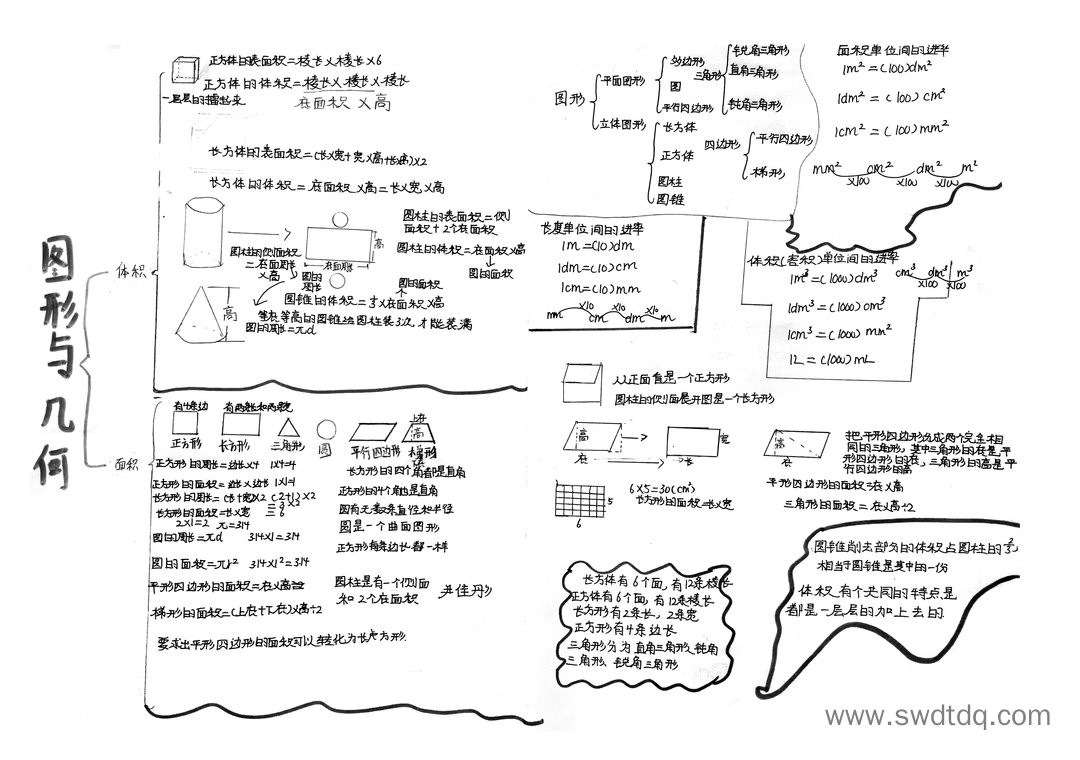 图形与几何
体积
正方体的表面积=棱长×棱长×6
正方体的体积=棱长×棱长×棱长
一层层的擂起来
底面积×高
长方体的体积=底面积×高=长×宽×高
圆柱的侧面积
=底面周长
×高
底面周长
高
圆的
周长
圆柱的表面积=侧
面积+2个底面积
圆柱的体积=底面积×高
圆的面积
圆的面积
圆锥的体积=⅓×底面积×高
高
等底等高的圆锥给圆柱装3次,才能装满
圆的周长=πd
面积
有4条边
正方形
长方形
三角形
圆
平行四边形
上底
高
梯形
正方形的周长=边长×4 1×4=4
正方形的面积=边长×边长 1×1=1
长方形的面积=长×宽
2×1=2 π=3.14
圆的周长=πd 3.14×1=3.14
圆的面积=πr² 3.14×1²=3.14
平行四边形的面积=底×高
梯形的面积=(上底+下底)×高÷2
要求出平行四边形的面积可以转化为长方形
长方形的四个角都是直角
正方形的4个角也是直角
圆有无数条直径和半径
圆是一个曲面图形
正方形每条边长都一样
圆柱是有一个侧面
和2个底面积
图形
平面图形
多边形
圆
平行四边形
三角形
锐角三角形
直角三角形
钝角三角形
立体图形
长方体
正方体
圆柱
圆锥
四边形
平行四边形
梯形
面积单位间的进率
1m²=(100)dm²
1dm²=(100)cm²
1cm²=(100)mm²
mm² cm² dm² m²
×100 ×100 ×100
长度单位间的进率
1m=(10)dm
1dm=(10)cm
1cm=(10)mm
×10 ×10 ×10
mm cm dm m
体积(容积)单位间的进率
1m³=(1000)dm³
1dm³=(1000)cm³
1cm³=(1000)mm²
1L=(1000)mL
cm³ dm³ m³
×100 ×100
从正面看是一个正方形
圆柱的侧面展开图是一个长方形
高
底
宽
长
高
底
把平形四边形分成两个完全相
同的三角形,其中三角形的底是平
形四边形的底,三角形的高是平
行四边形的高
平形四边形的面积=底×高
三角形的面积=底×高÷2
5
6
6×5=30(cm²)
长方形的面积=长×宽
长方体有6个面,有12条棱长
正方体有6个面,有12条棱长
长方形有2条长,2条宽
正方形有4条边长
三角形分为直角三角形、钝角
三角形、锐角三角形
圆锥削去部分的体积占圆柱的⅔,
相当于圆锥是其中的一份
体积有个共同的特点是
都是一层层的加上去的
www.swdtdq.com